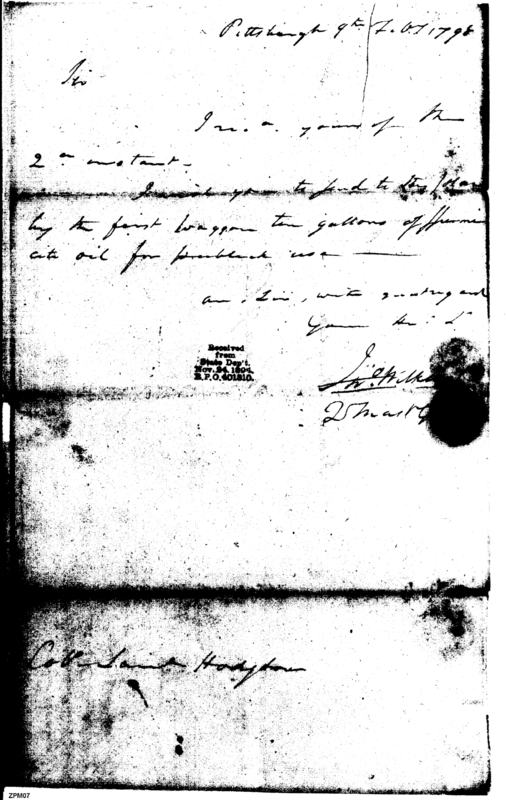 Pittsburgh 9th Feb 1798
Sir
yours of the
2d instant.
I wish you to send to this place
by the first waggon ten gallons of sperma
cite oil for publick use
am, Sir, with great regard
Your
Jno. Wilk
Received
from
State Dep't.
Nov. 24, 1894.
R.P.O. 401810.
Coll. Saml. Hodgdon
ZPM07